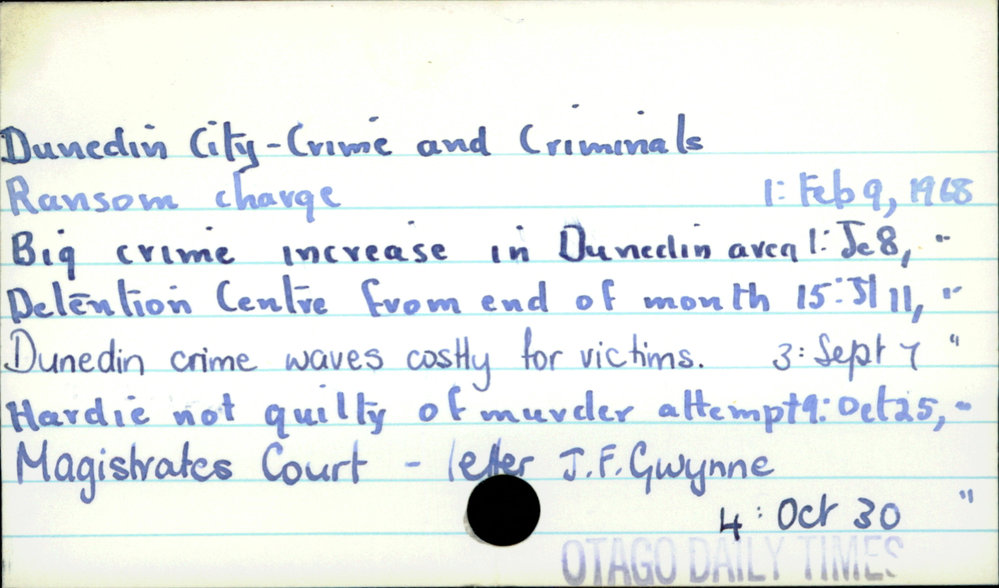 Dunedin City - Crime and Criminals
Ransom charge 1: Feb 9, 1968
Big crime increase in Dunedin area 1: Je 8, "
Detention Centre from end of month 15: Jl 11, "
Dunedin crime waves costly for victims. 3: Sept 7 "
Hardie not guilty of murder attempt 9: Oct 25, "
Magistrates Court - letter J.F. Gwynne
4: Oct 30 "
OTAGO DAILY TIMES